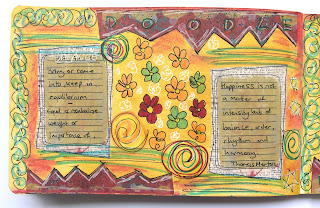 DOODLE
Bring or come
into keep in
equilibrium
equal or neutralize
weight or
importance of
Happiness is not
a matter of
intensity but of
balance, order,
rhythm and
harmony.
Thomas Merton